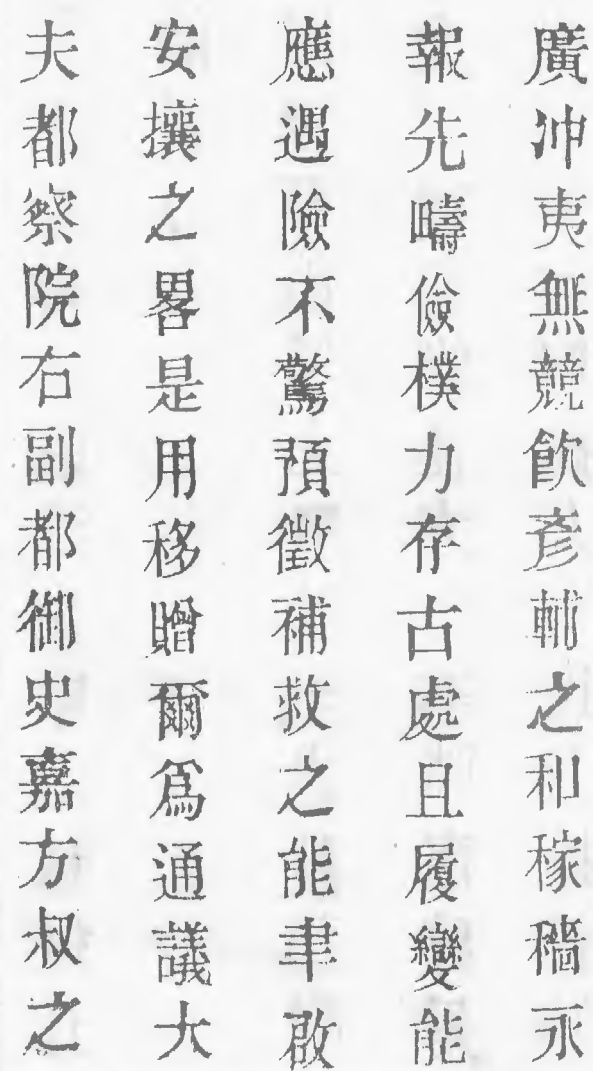 廣冲夷無競飮彥輔之和稼穡永
報先疇儉樸力存古處且履變能
應遇險不驚預徵補救之能聿啟
安攘之畧是用移贈爾爲通議大
夫都察院右副都御史嘉方叔之